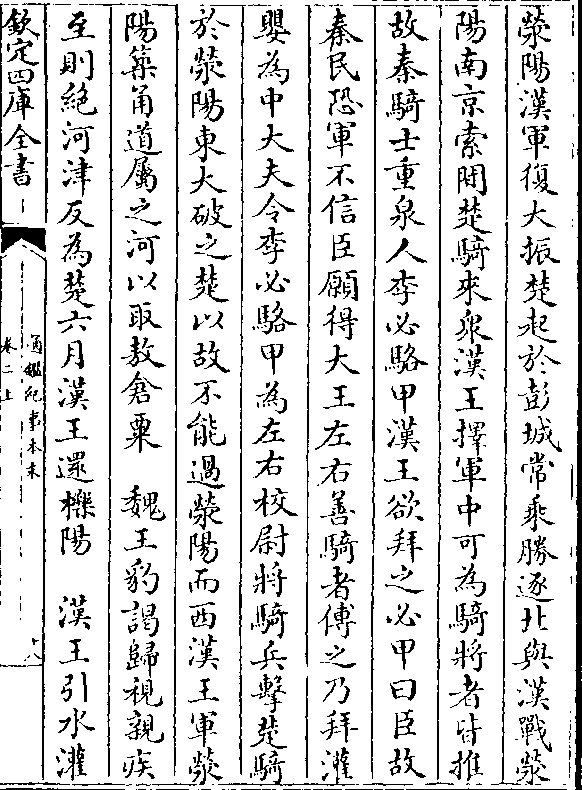 滎陽漢軍復大振楚起於彭城常乘勝逐北與漢戰滎
陽南京索間楚騎來衆漢王擇軍中可為騎將者皆推
故秦騎士重泉人李必駱甲漢王欲拜之必甲曰臣故
秦民恐軍不信臣願得大王左右善騎者傅之乃拜灌
嬰為中大夫令李必駱甲為左右校尉將騎兵擊楚騎
於滎陽東大破之楚以故不能過滎陽而西漢王軍滎
陽築甬道屬之河以取敖倉粟　魏王豹謁歸視親疾
至則絶河津反為楚六月漢王還櫟陽　漢王引水灌
欽定四庫全書
通鑑紀事本末
卷二上
十八